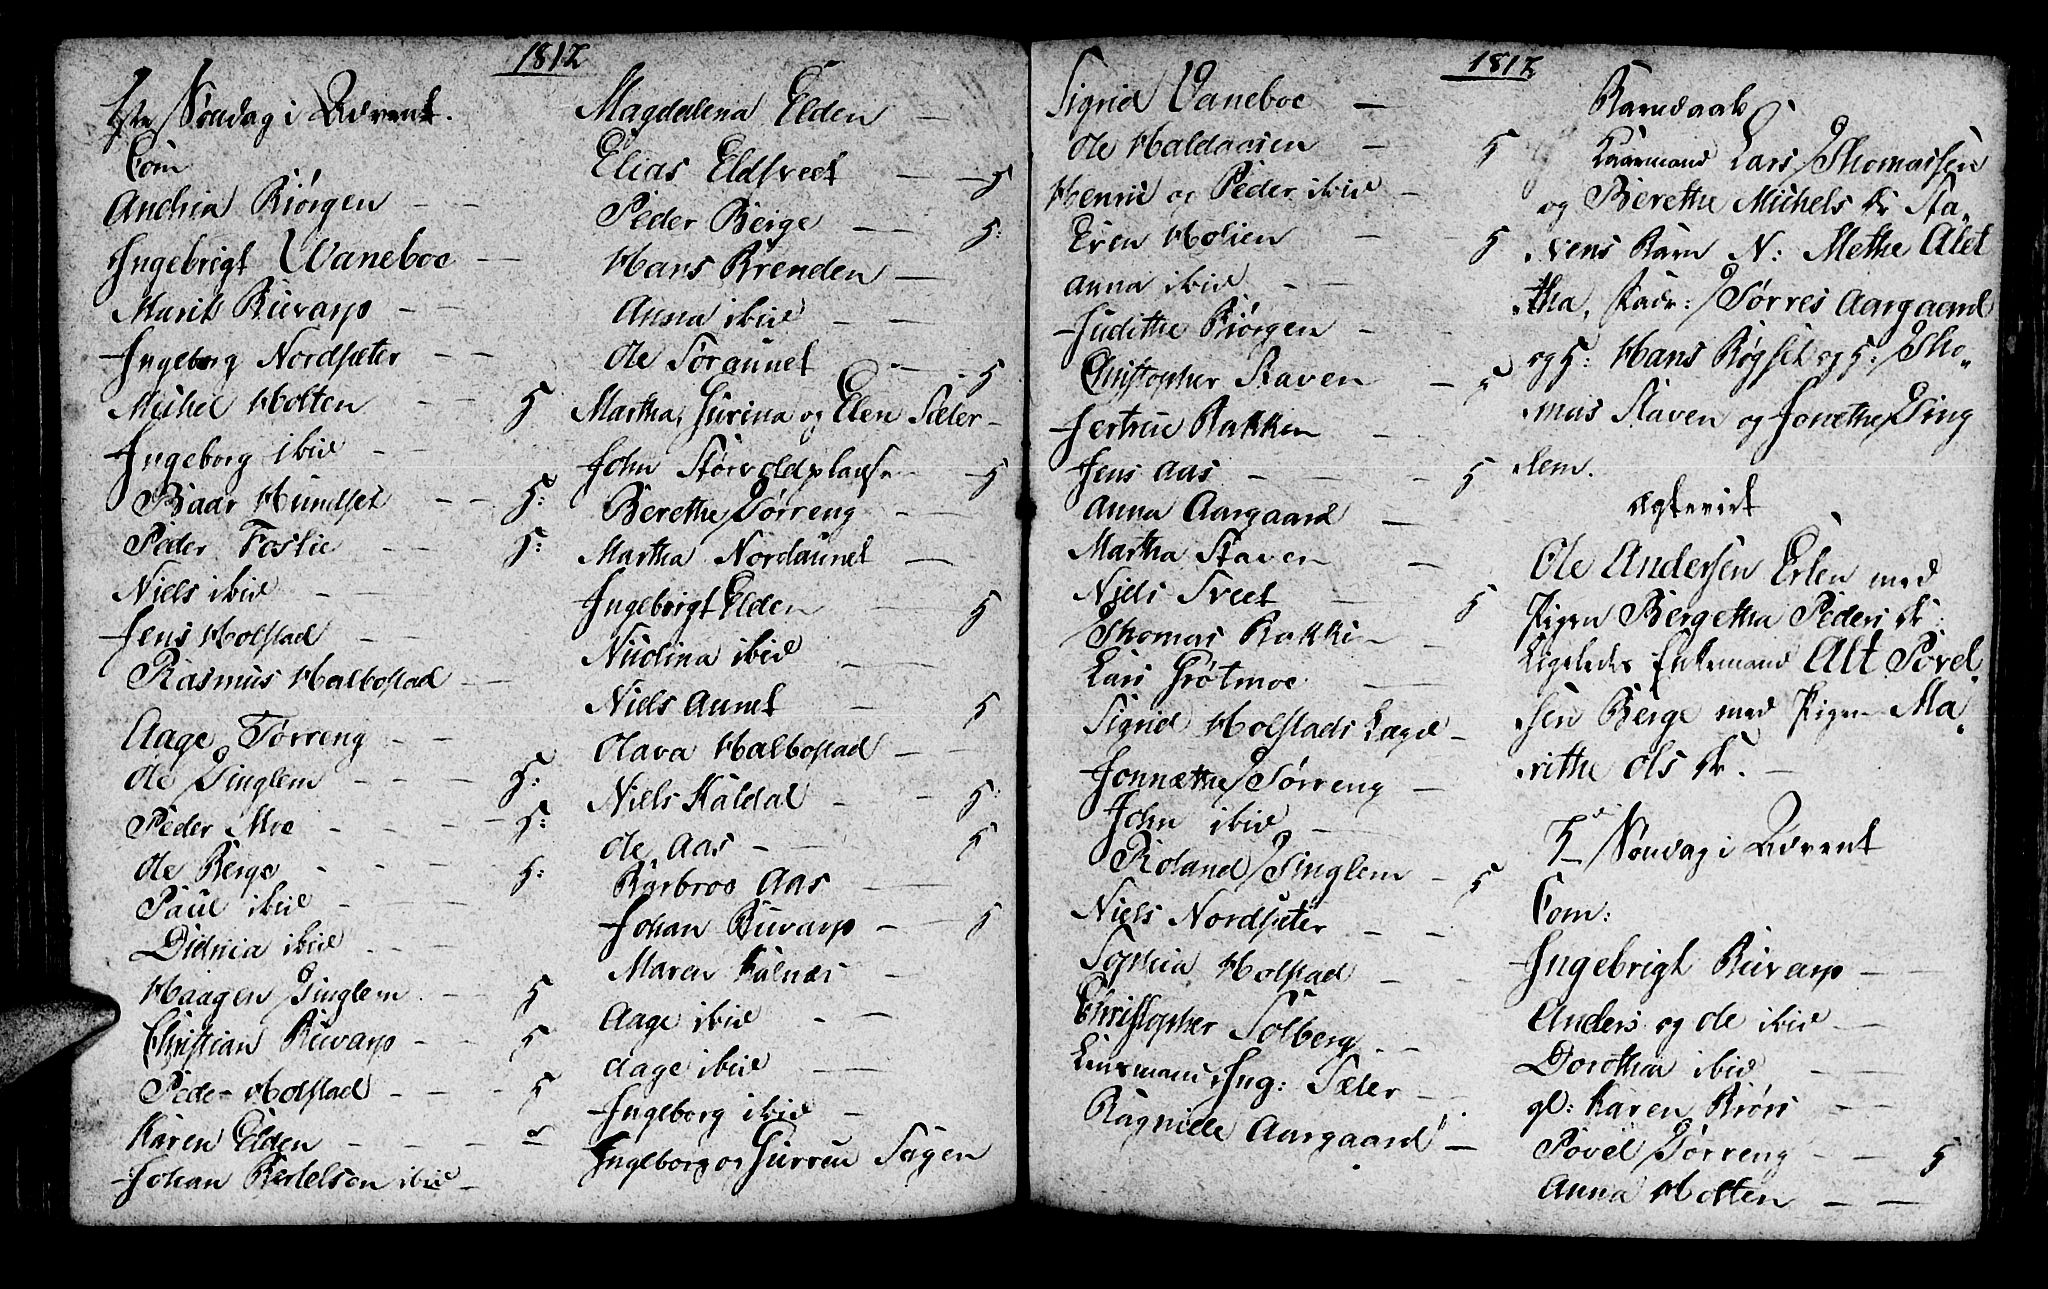 1812
1ste Søndag i Advent.
Com
Andria Biörgen — —
Ingebrigt Waneboe —
Marit Rievarp — —
Ingeborg Nordsæter — —
Michel Holten — — h
Ingeborg ibid — —
Baar Hundset — — h:
Peder Foslie — — h:
Niels ibid — —
Jens Holstad — —
Rasmus Halbostad — —
Aage Törreng — —
Ole Singlem — — h:
Peder Moe — — — h:
Ole Berge — — — h:
Paul ibid — — —
ibid — —
Haagen Singlem — — h
Christian Rievarp — — h
Peder Holstad — — — h
Karen Elden — — —
Johan Bertelsen ibid —
Magdalena Elden —
Elias Eldtreet — — h
Peder Berge — — h:
Hans Brenden —
Anna ibid — —
Ole Söraunet — — h
Martha, Gurina og Elen Sæter —
John Störvoldplads — h
Berethe Törreng — —
Martha Nordaunet —
Ingebrigt Elden — h
ibid —
Niels Aunet — h
Olava Halbostad — —
Niels Kaldal — — h
Ole Aas — — h
Barbroe Aas — —
Johan Rievarp — h
Maren Kalnæs —
Aage ibid — —
Aage ibid — —
Ingeborg ibid —
Ingeborg og Gurren Sagen
1812
Sigrid Vaneboe —
Ole Haldaasen — h
Henric og Peder ibid —
Even Holien — — h
Anna ibid — —
Judithe Biörgen — —
Christopher Staven — h
Gertrue Bakken — —
Jens Aas — — — h
Anna Aargaard —
Martha Staven —
Niels Treet — — h
Thomas Bakken —
Lars Grötmoe — —
Sigrid Holstads —
Jonnethe Törreng —
John ibid —
Roland Singlem — h
Niels Nordsæter — —
Sophia Holstad —
Christopher Solberg — —
Ing: Sæter — —
Ragnille Aargaard —
Barndaab
Lars Thomassen
og Berethe Michels Dr Sta-
vens Barn N: Methe Alet
tha, Fadr: Törres Aargaard
og h: Hans Rögset og h: Tho-
mas Staven og Jonethe Sing
lem.
Ægteviet
Ole Andersen Erlen med
Pigen Bergetha Peders Dr:
Ligeledes Enkemand Alt Povel
sen Berge med Pigen Ma-
rithe Ols Dr. —
Søndag i Advent
Com:
Ingebrigt Rievarp —
Anders og Ole ibid —
Dorothea ibid —
gl: Karen Biörs —
Povel Törreng — — h
Anna Holten — —